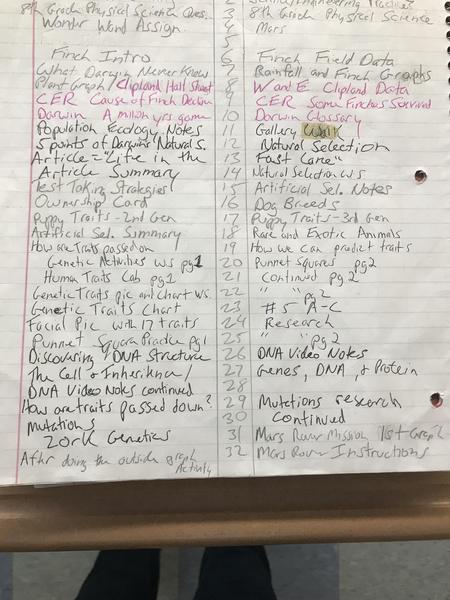 2 Science/Engineering Practices
8th Grade Physical Science Ques. 3 8th Grade Physical Science
Wonder Word Assign. 4 Mars
5
Finch Intro 6 Finch Field Data
What Darwin Never Knew 7 Rainfall and Finch Graphs
Plant Graph / Clipland Hall Sheet 8 W and E Clipland Data
CER Cause of Finch Decline 9 CER Some Finches Survived
Darwin A million yrs game 10 Darwin Glossary
Population Ecology Notes 11 Gallery Walk
5 points of Darwin's Natural S. 12 Natural Selection
Article = "Life in the 13 Fast Lane"
Article Summary 14 Natural Selection WS
Test Taking Strategies 15 Artificial Sel. Notes
Ownership Card 16 Dog Breeds
Puppy Traits - 2nd Gen 17 Puppy Traits - 3rd Gen
Artificial Sel. Summary 18 Rare and Exotic Animals
How are Traits passed on 19 How we can predict traits
Genetic Activities WS pg1 20 Punnet Squares pg2
Human Traits Lab pg1 21 Continued pg2
Genetic Traits pic and chart WS. 22 " " pg2
Genetic Traits Chart 23 #5 A-C
Facial Pic with 17 traits 24 Research
Punnet Square Practice pg1 25 " " pg2
Discovering DNA Structure 26 DNA Video Notes
The Cell & Inheritence/ 27 Genes, DNA, & Protein
DNA Video Notes continued 28
How are traits passed down? 29 Mutations research
Mutations 30 Continued
Zork Genetics 31 Mars Rover Mission 1st Graph
After doing the outside graph Activity 32 Mars Rover Instructions